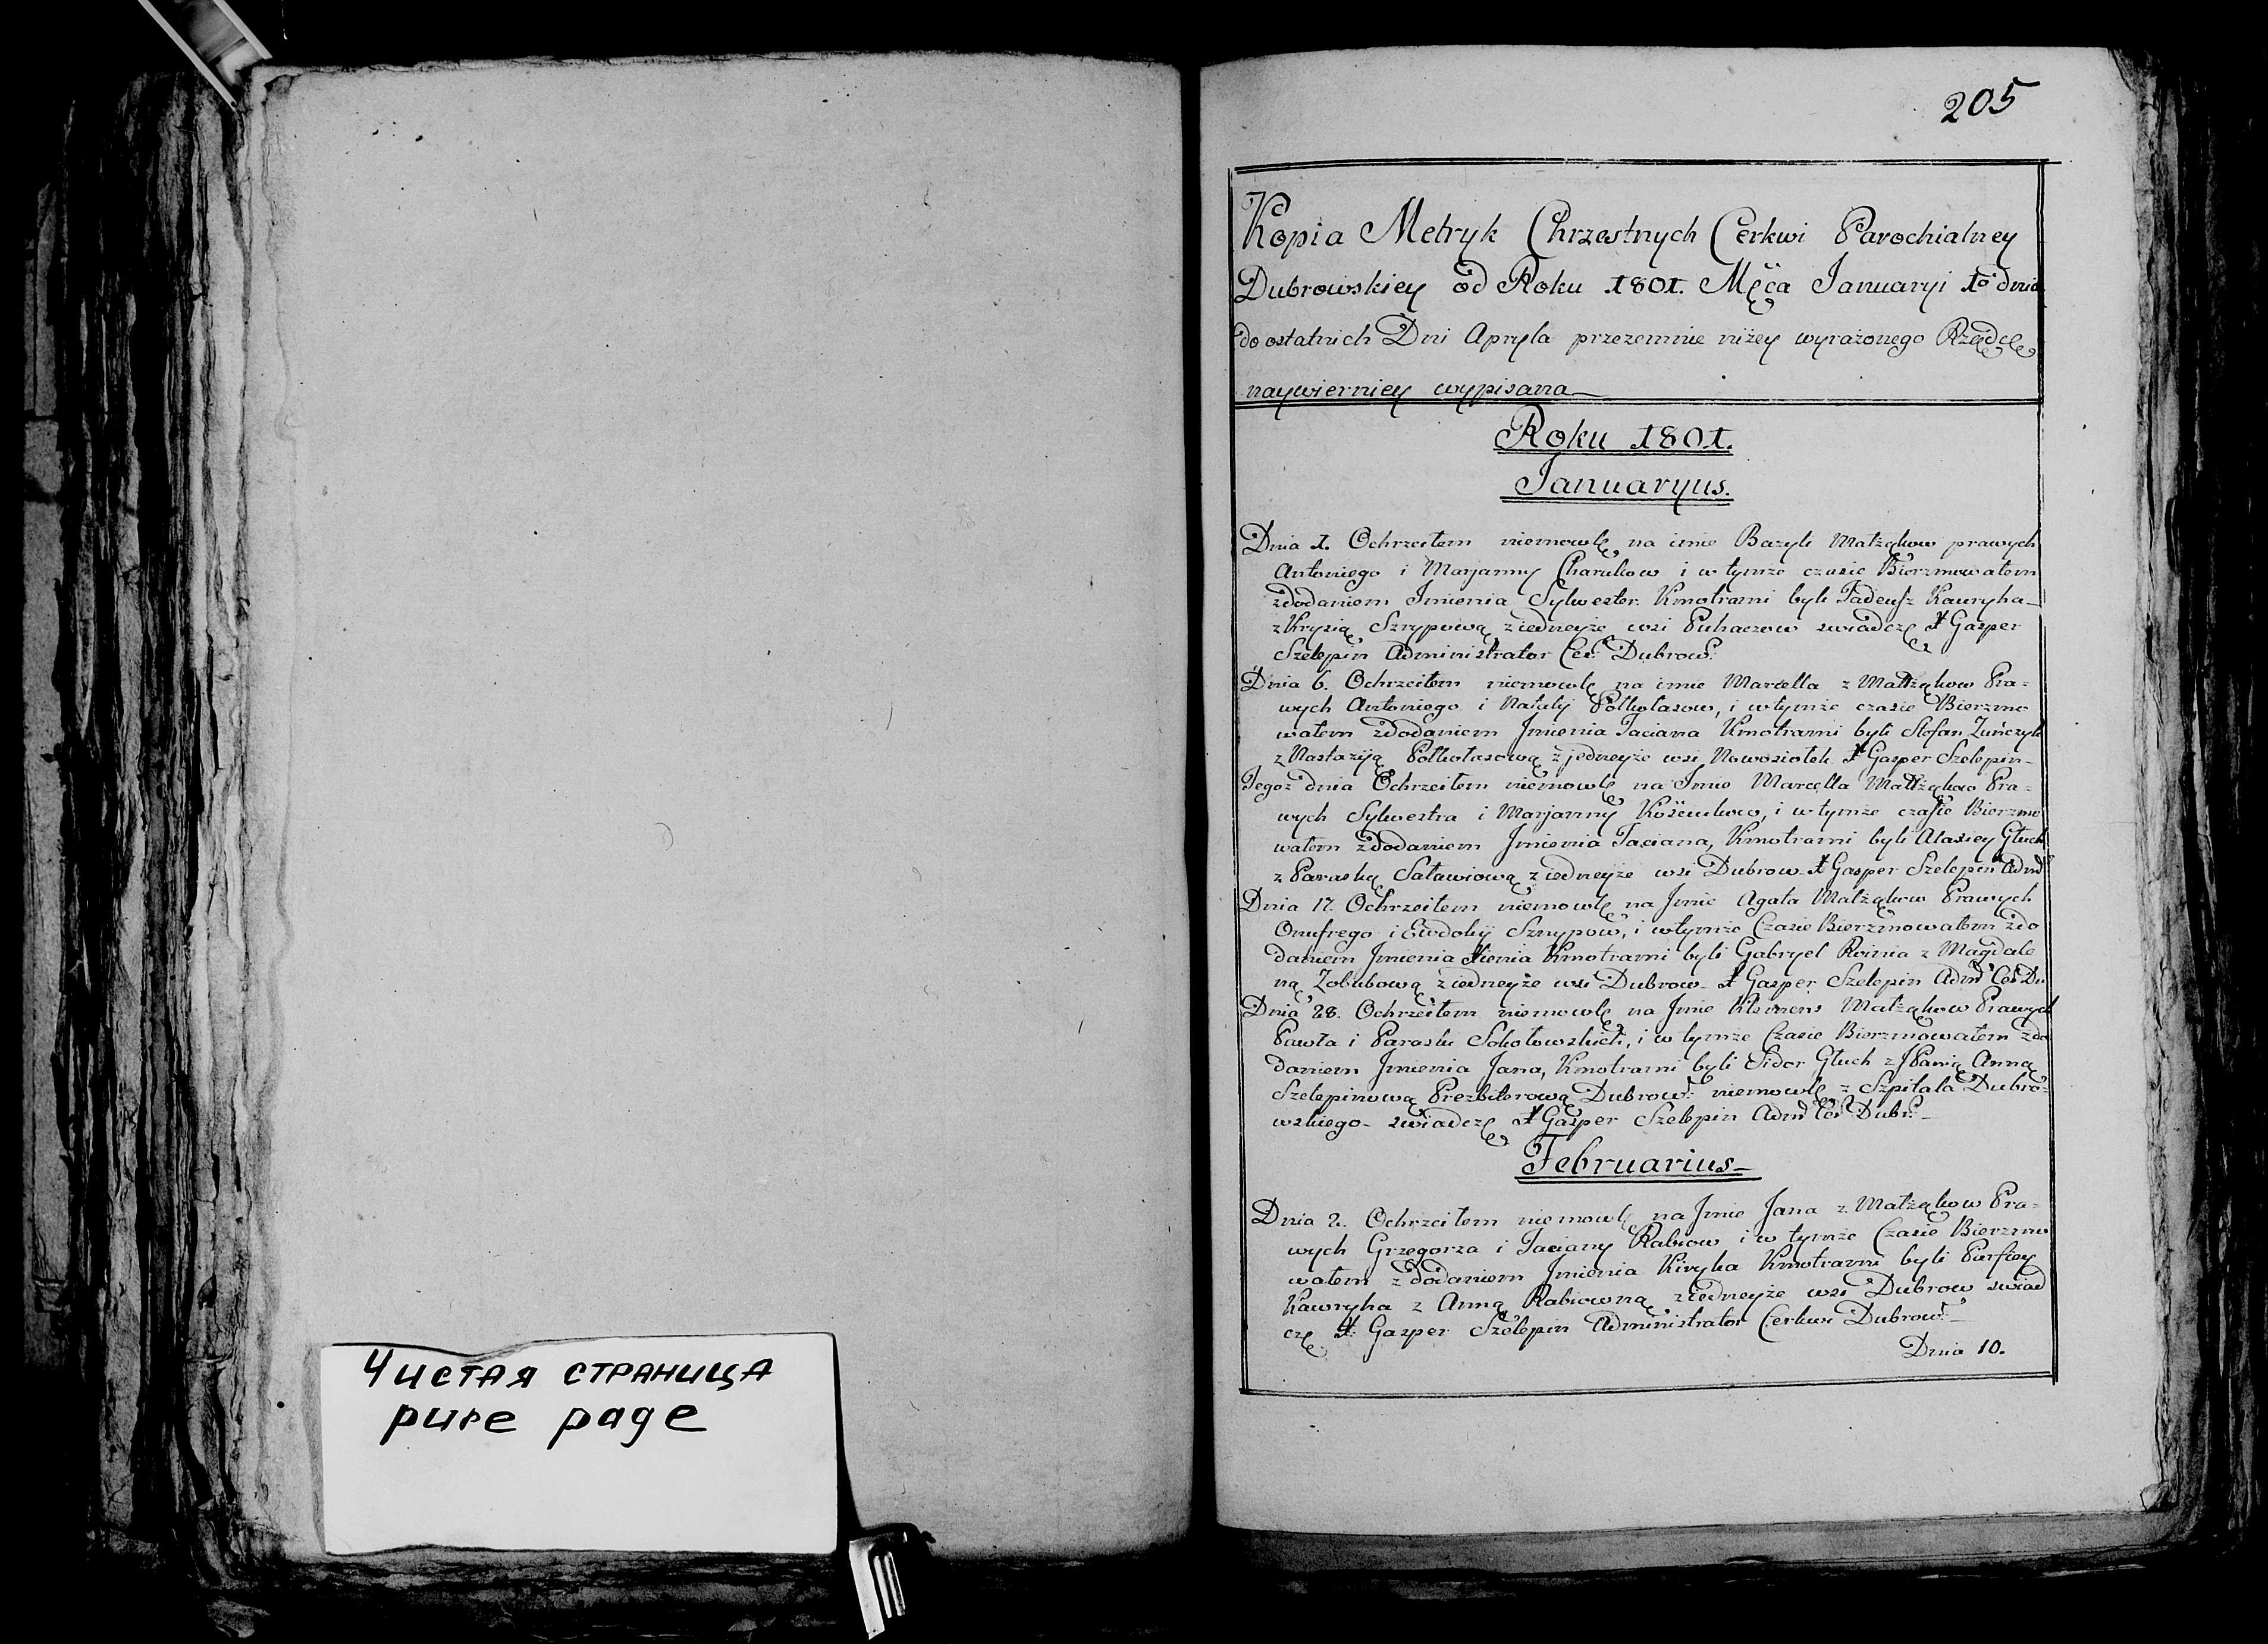 Чистая страница
pure page
205
Kopia Metryk Chrzestnych Cerkwi Parochialney
Dubrowskiey od Roku 1801. Męca Januaryi 1o dnia
do ostatnich Dni Apryla przezemnie niżey wyrażonego Rządcę
naywierniey wypisana
Roku 1801.
Januaryus.
Dnia 1. Ochrzciłem niemowlę na imie Bazyli Małżąkow prawych
Antoniego i Marjanny i w tymże czasie Bierzmowałem
zdodaniem Imienia Sylwester. Kmotrami byli Tadeusz Kawryha
z Krysią Sznypową z iedneyże wsi Puhaczow swiadczę X Gasper
Szelepin Administrator Cer: Dubrow:
Dnia 6. Ochrzciłem niemowlę na imie Marcella z Małżąkow Pra-
wych Antoniego i Natalij Połkotasow, i wtymże czasie Bierzmo
wałem zdodaniem Jmienia Taciana Kmotrami byli Stefan
z Nastazyją Połkotasową z jedneyże wsi Nowosiołek X Gasper Szelepin-
Tegoż dnia Ochrzciłem niemowlę na Imie Marcella Małżąkow Pra-
wych Sylwestra i Marjanny i w tymże czasie Bierzmo
wałem zdodaniem Jmienia Taciana, Kmotrami byli Alaxiey Głuch
z Paraską Saławiową z iedneyże wsi Dubrow X Gasper Szelepin Adm
Dnia 17. Ochrzciłem niemowlę na Jmie Agata Małżąkow Prawych
Onufrego i Ewdokij Sznypow, i wtymże Czasie Bierzmowałem zdo
daniem Jmienia Xienia Kmotrami byli Gabryel z Magdale
ną Zołubową z iedneyże wsi Dubrow- X Gasper Szelepin Adm Cer Du
Dnia 28. Ochrzciłem niemowlę na Jmie Klemens Małżąkow Prawych
Pawła i Paraski Sokołowskich, i w tymże Czasie Bierzmowałem zdo
daniem Jmienia Jana, Kmotrami byli Sidor Głuch z JPanią Anną
Szelepinową Prezbiterową Dubrow: niemowlę z Szpitala Dubro-
wskiego- swiadczę X Gasper Szelepin Adm Cer Dubr:-
Februarius-
Dnia 2. Ochrzciłem niemowlę na Jmie Jana z Małżąkow Pra-
wych Grzegorza i Taciany Rabiow i w tymże Czasie Bierzmo
wałem z dodaniem Jmienia Kiryka Kmotrami byli Parfiey
Kawryha z Anną Rabiowną z iedneyże wsi Dubrow swiad
czę X: Gasper Szelepin Administrator Cerkwi Dubrow:-
Dnia 10.